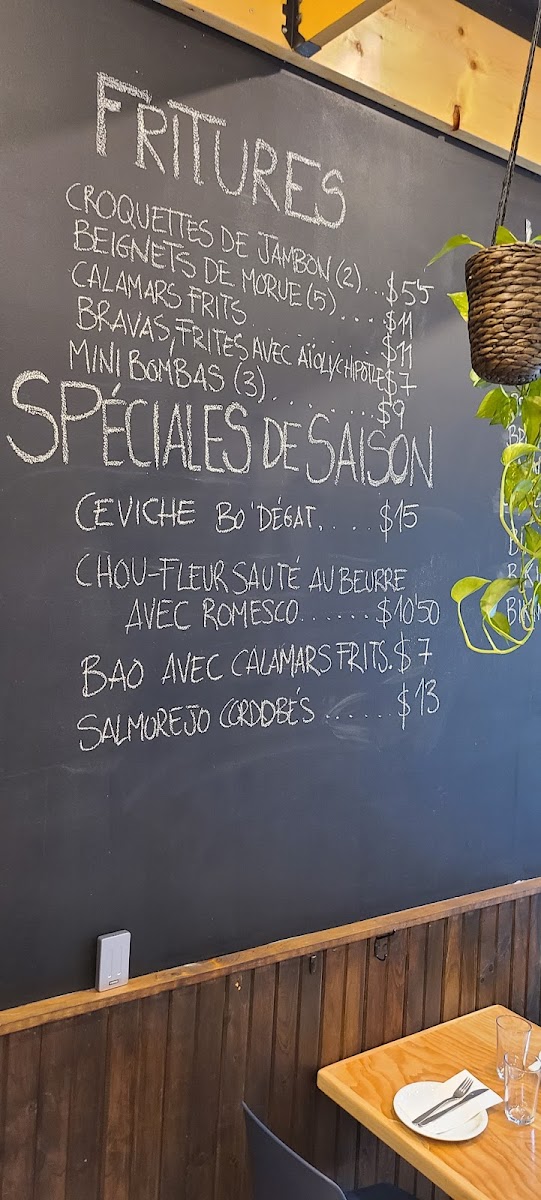 FRITURES
CROQUETTES DE JAMBON (2)...$5'5
BEIGNETS DE MORUE (5)....$11
CALAMARS FRITS..........$11
BRAVAS, FRITES AVEC AÏOLI/CHIPOTLE $7
MINI BOMBAS (3)..........$9
SPÉCIALES DE SAISON
CEVICHE BO'DÉGAT.....$15
CHOU-FLEUR SAUTÉ AU BEURRE
AVEC ROMESCO.......$10'50
BAO AVEC CALAMARS FRITS.$7
SALMOREJO CORDOBÉS......$13